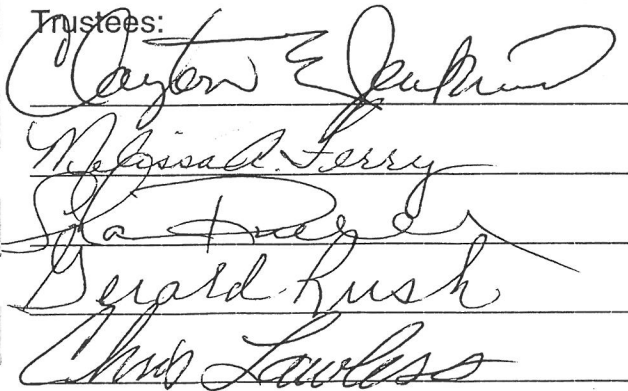 Trustees:
Clayton E Jenkins
Melissa A. Ferry
Gerard Rush
Chris Lawless